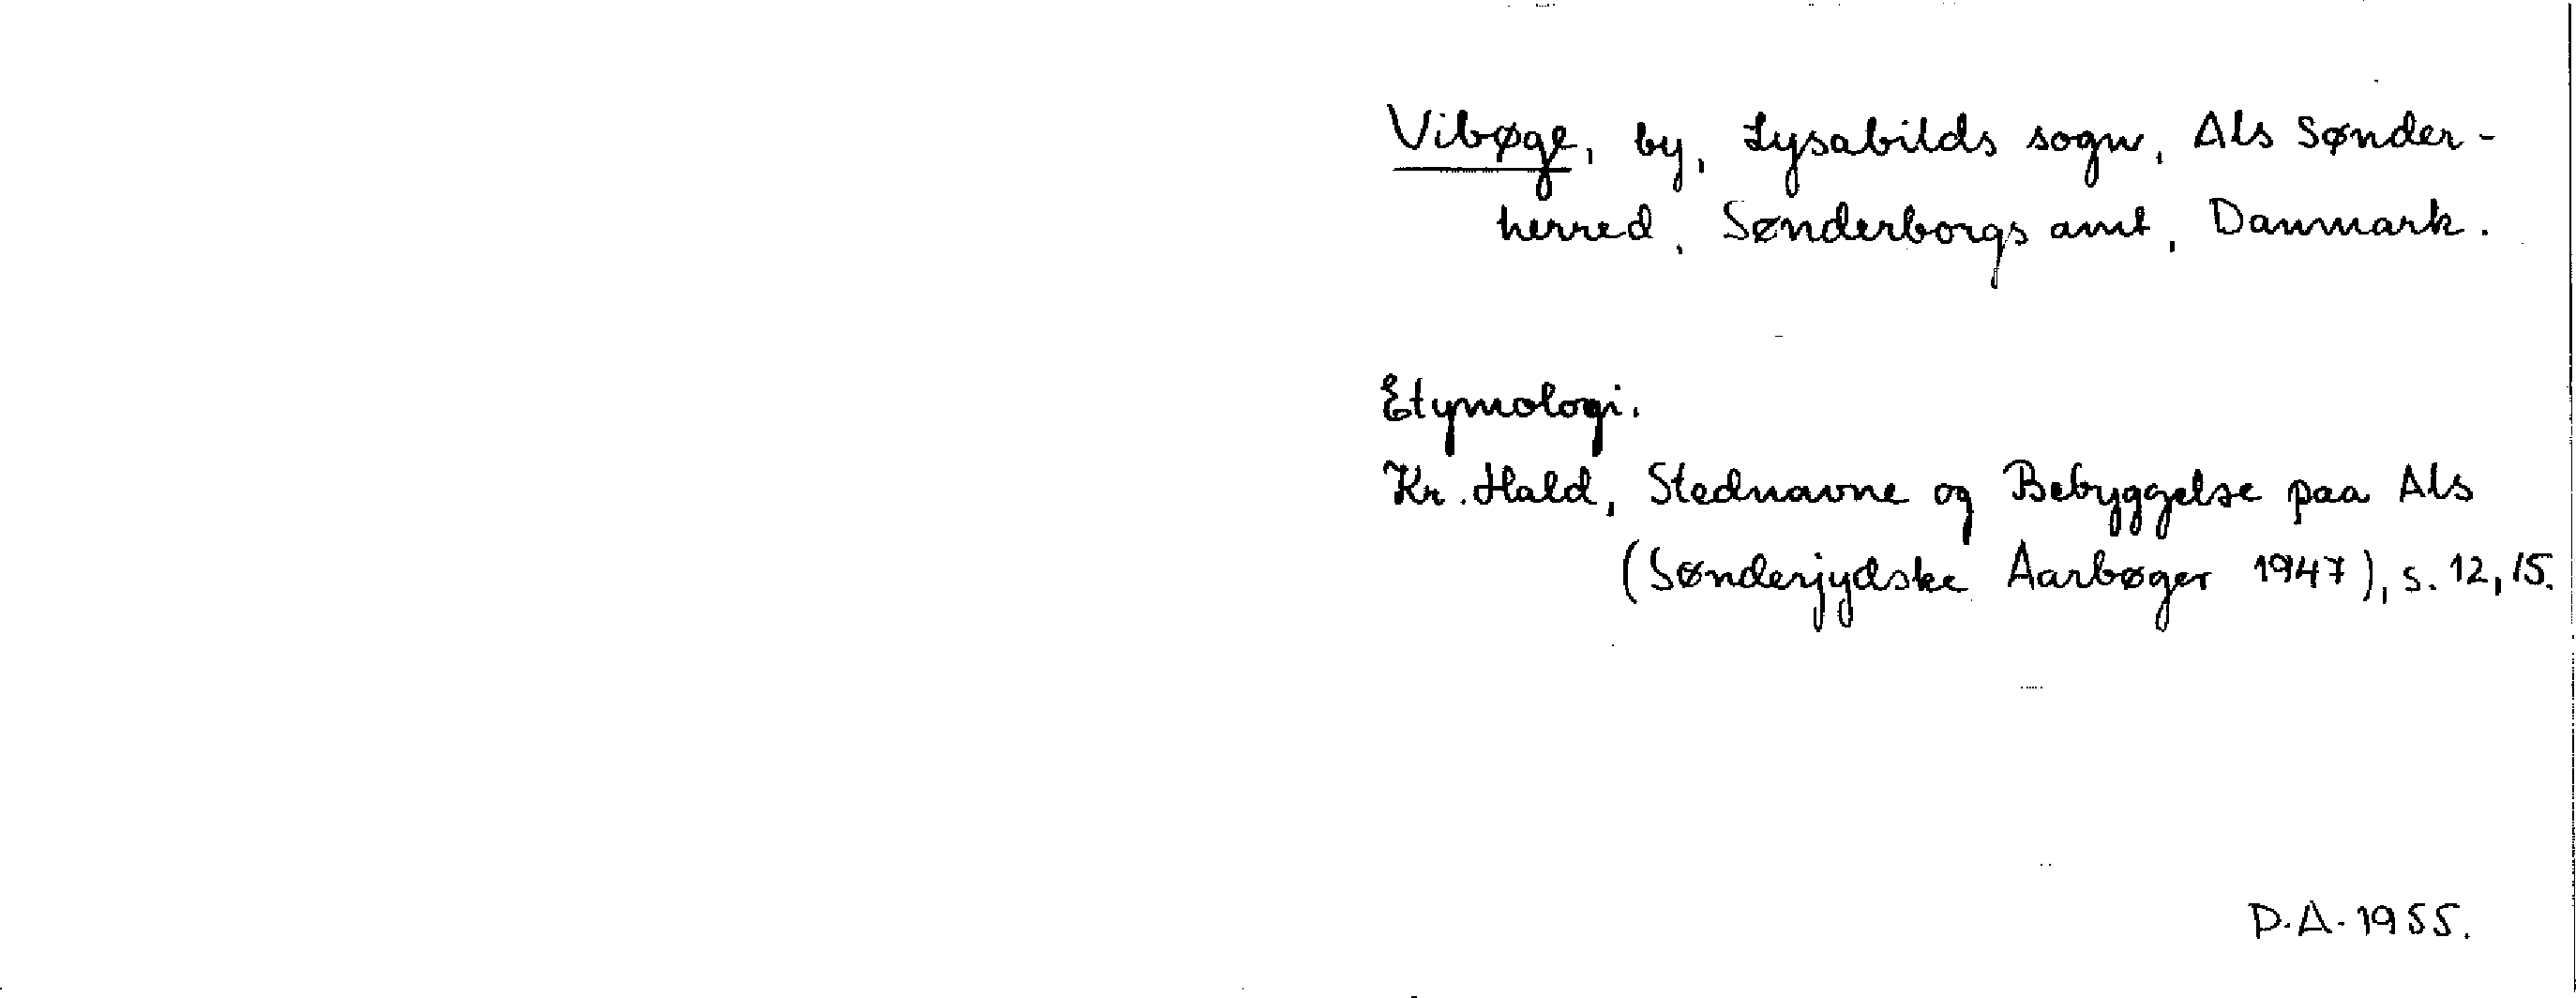 Vibøge, by, Lysabilds sogn, Als Sønder-
herred, Sønderborgs amt, Danmark.
Etymologi.
Kr. Hald, Stednavne og Bebyggelse paa Als
(Sønderjydske Aarbøger 1947), s. 12, 15.
D.A. 1955.